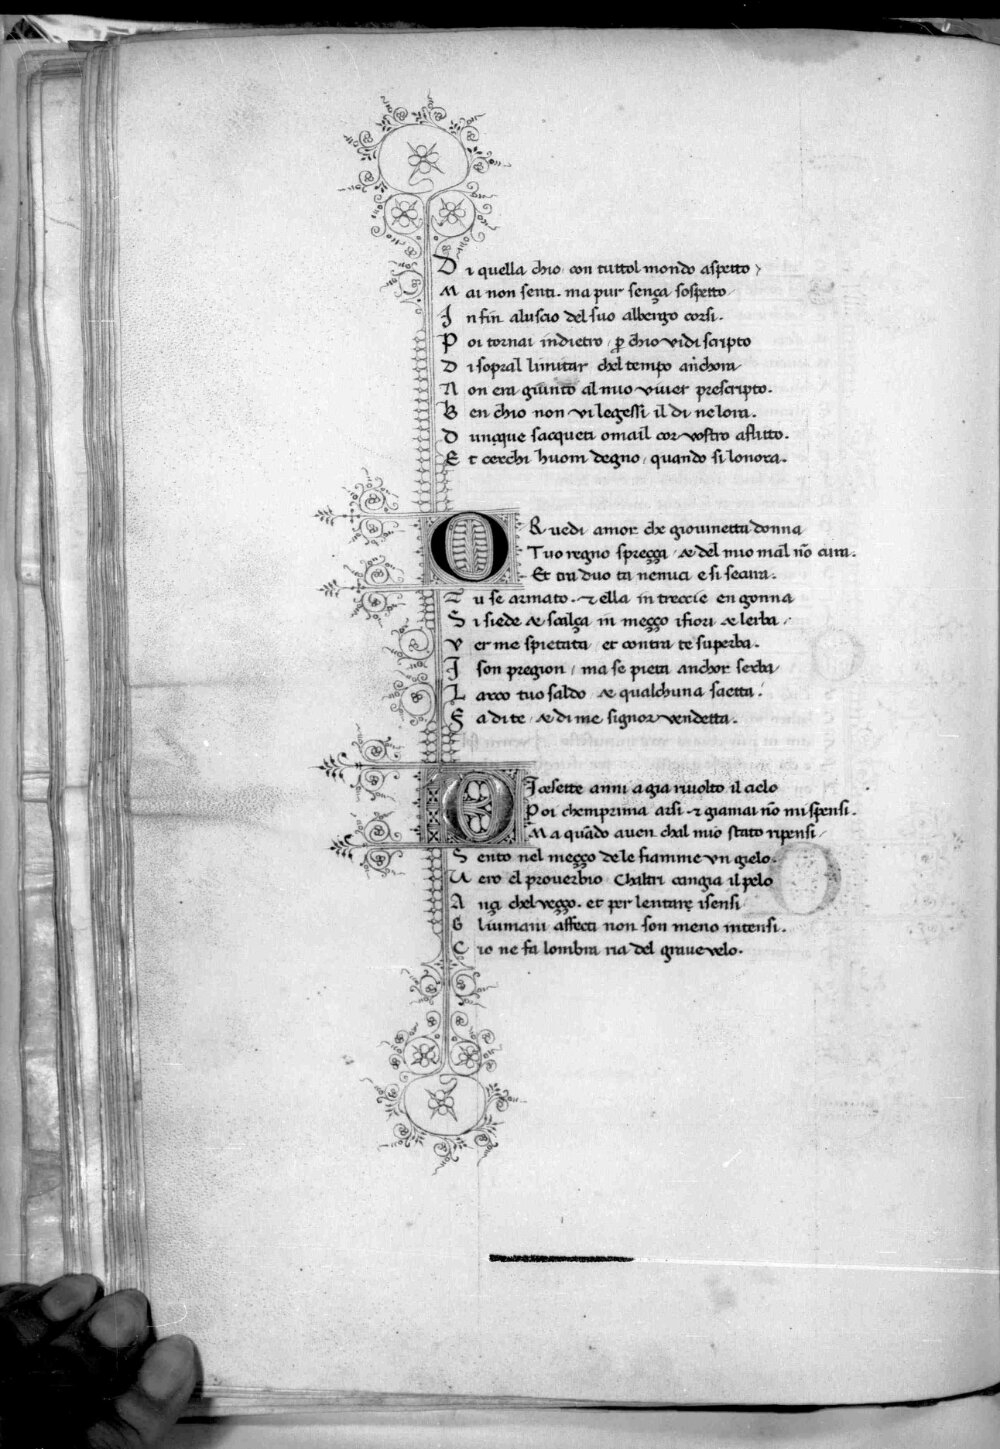 Di quella chio con tuttol mondo aspetto
Mai non senti. ma pur sença sospetto
Infin aluscio del suo albergo corsi.
Poi tornai indietro, ꝑ chio vidi scripto
Di sopral limitar chel tempo anchora
Non era giunto al mio viver prescripto.
Ben chio non vi legessi il di nelora.
Dunque sacqueti omail cor vostro aflitto.
Et cerchi huom degno, quando si lonora.
OR vedi amor che giovinetta donna
Tuo regno spreçça, & del mio mal nõ cura.
Et tra duo ta nemici e si secura.
Tu se armato. & ella in treccie en gonna
Si siede & scalça in meçço ifiori & lerba,
Ver me spietata, et contra te superba.
I son pregion, ma se pieta anchor serba
Larco tuo saldo & qualchuna saetta.
Fa di te, & di me signor vendetta.
DIcesette anni a gia rivolto il cielo
Poi chemprima arsi & giamai nõ mi spensi.
Ma quãdo aven chal mio stato ripensi,
Sento nel meçço de le fiamme un gielo.
Vero el proverbio Chaltri cangia il pelo
Ança chel veçço. et per lentare isensi
Gliumani affecti non son meno intensi.
Cio ne fa lombra ria del grave velo.